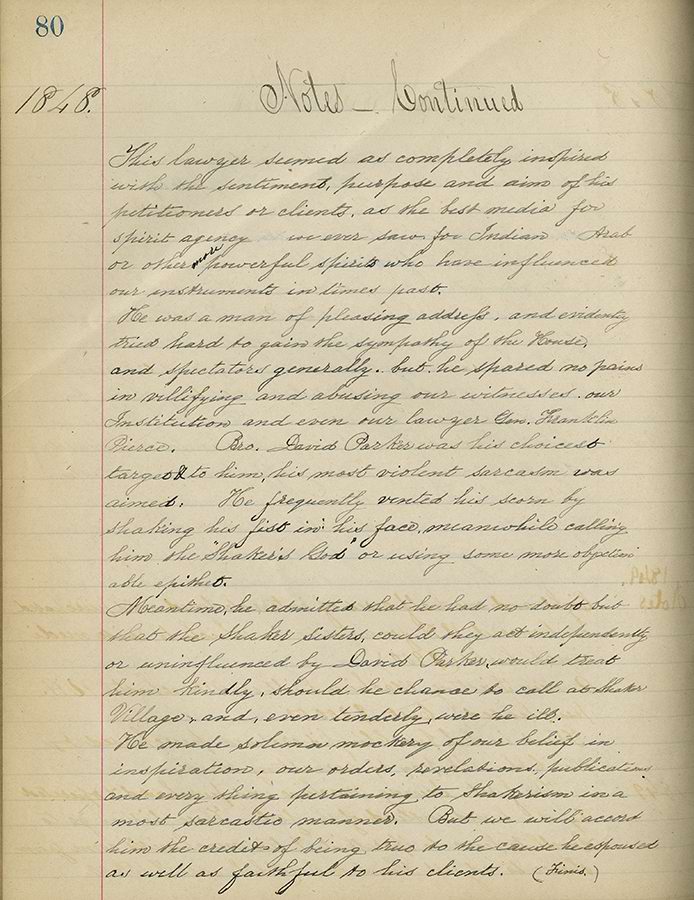 80
1848. Notes - Continued
This lawyer seemed as completely inspired
with the sentiment, purpose and aim of his
petitioners or clients, as the best media for
spirit agency we ever saw for Indian Arab
or other more powerful spirits who have influenced
our instruments in times past.
He was a man of pleasing address, and evidently
tried hard to gain the sympathy of the House,
and spectators generally. but he spared no pains
in villifying and abusing our witnesses. our
Institution and even our lawyer Gen. Franklin
Pierce. Bro. David Parker was his choicest
target & to him, his most violent sarcasm was
aimed. He frequently vented his scorn by
shaking his fist in his face, meanwhile calling
him the "Shaker's God" or using some more objection
able epithet.
Meantime, he admitted that he had no doubt but
that the Shaker Sisters, could they act independently
or uninfluenced by David Parker, would treat
him kindly, should he chance to call at Shaker
Village, and, even tenderly, were he ill.
He made solemn mockery of our belief in
inspiration, our orders, revelations, publications
and every thing pertaining to Shakerism in a
most sarcastic manner. But we will accord
him the credit of being true to the cause he espoused
as well as faithful to his clients. (Finis.)